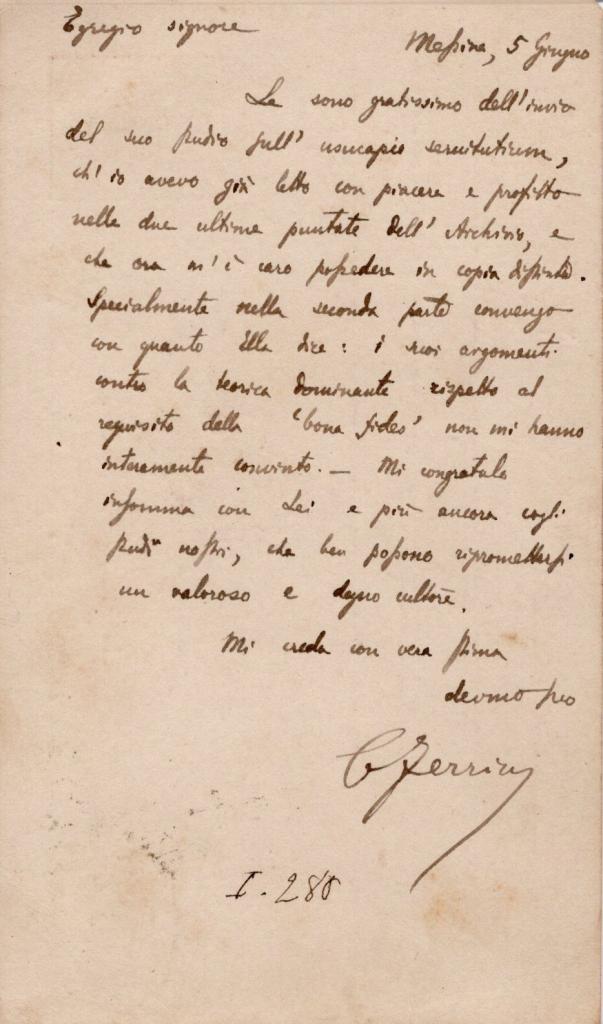 Egregio signore
Messina, 5 Giugno
Le sono gratissimo dell'invio
del suo studio sull' usucapio servitutium,
ch' io avevo già letto con piacere e profitto
nelle due ultime puntate dell' Archivio, e
che ora m' è caro possedere in copia distinta.
Specialmente nella seconda parte convengo
con quanto Ella dice: i suoi argomenti
contro la teorica dominante rispetto al
requisito della 'bona fides' non mi hanno
interamente convinto. — Mi congratulo
insomma con Lei e più ancora cogli
studi nostri, che ben possono ripromettersi
un valoroso e degno cultore.
Mi creda con vera stima
devmo suo
C Ferrini
I. 280